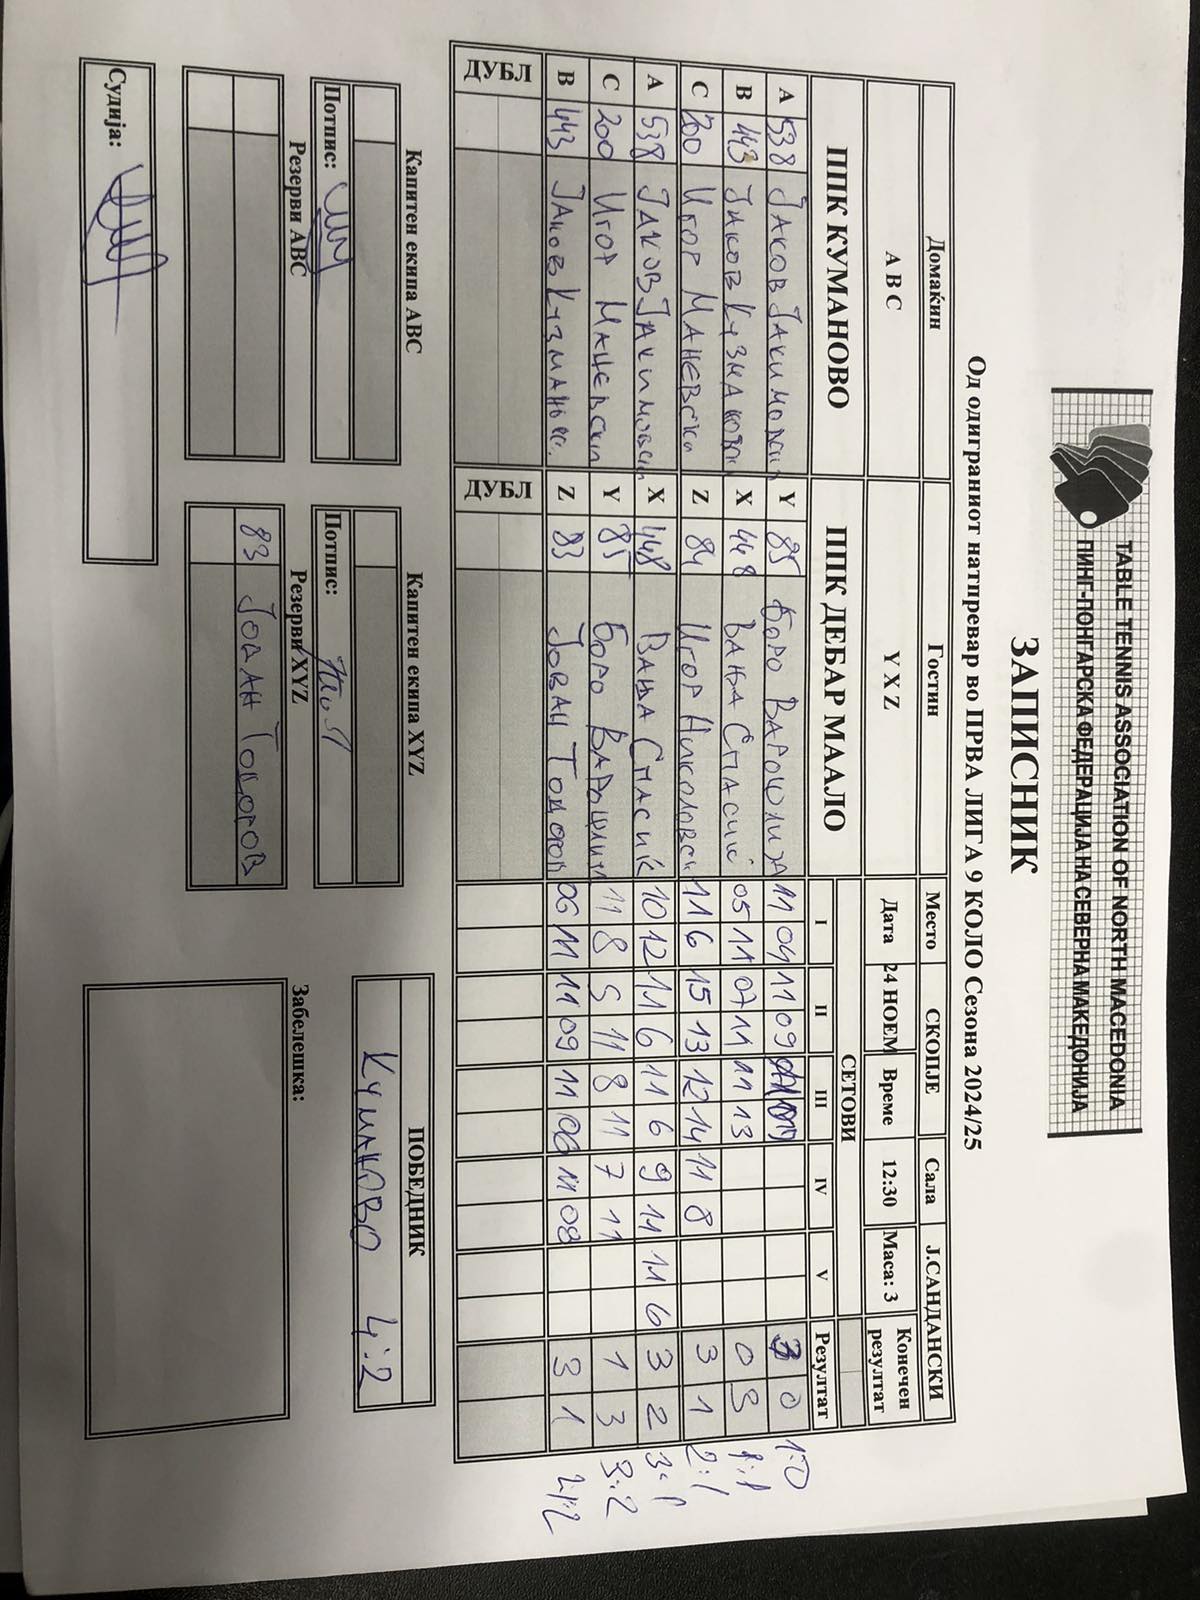 TABLE TENNIS ASSOCIATION OF NORTH MACEDONIA
ПИНГ-ПОНГАРСКА ФЕДЕРАЦИЈА НА СЕВЕРНА МАКЕДОНИЈА
ЗАПИСНИК
Од одиграниот натпревар во ПРВА ЛИГА 9 КОЛО Сезона 2024/25
Домаќин Гостин Место СКОПЈЕ Сала Ј.САНДАНСКИ
A B C Y X Z Дата 24 НОЕМ Време 12:30 Маса: 3 Конечен резултат
ППК КУМАНОВО ППК ДЕБАР МААЛО СЕТОВИ
I II III IV V Резултат
A 538 ЈАКОВ ЈАКИМОВСКИ Y 85 БОРО 11 04 11 09 3 0 1:0
B 443 ЈАКОВ X 448 ВАЊА СПАСИЌ 05 11 07 11 11 13 0 3 1:1
C 200 ИГОР МАНЕВСКИ Z 84 ИГОР НИКОЛОВСКИ 11 6 15 13 12 14 11 8 3 1 2:1
A 538 ЈАКОВ ЈАКИМОВСКИ X 448 ВАЊА СПАСИЌ 10 12 11 6 11 6 9 11 11 6 3 2 3:1
C 200 ИГОР Y 85 БОРО 11 8 5 11 8 11 7 11 1 3 3:2
B 443 ЈАКОВ Z 83 ЈОВАН 06 11 11 09 11 06 11 08 3 1 4:2
ДУБЛ ДУБЛ
Капитен екипа ABC Капитен екипа XYZ ПОБЕДНИК
КУМАНОВО 4:2
Потпис: Потпис:
Резерви ABC Резерви XYZ Забелешка:
83 ЈОВАН ТОДОРОВ
Судија: